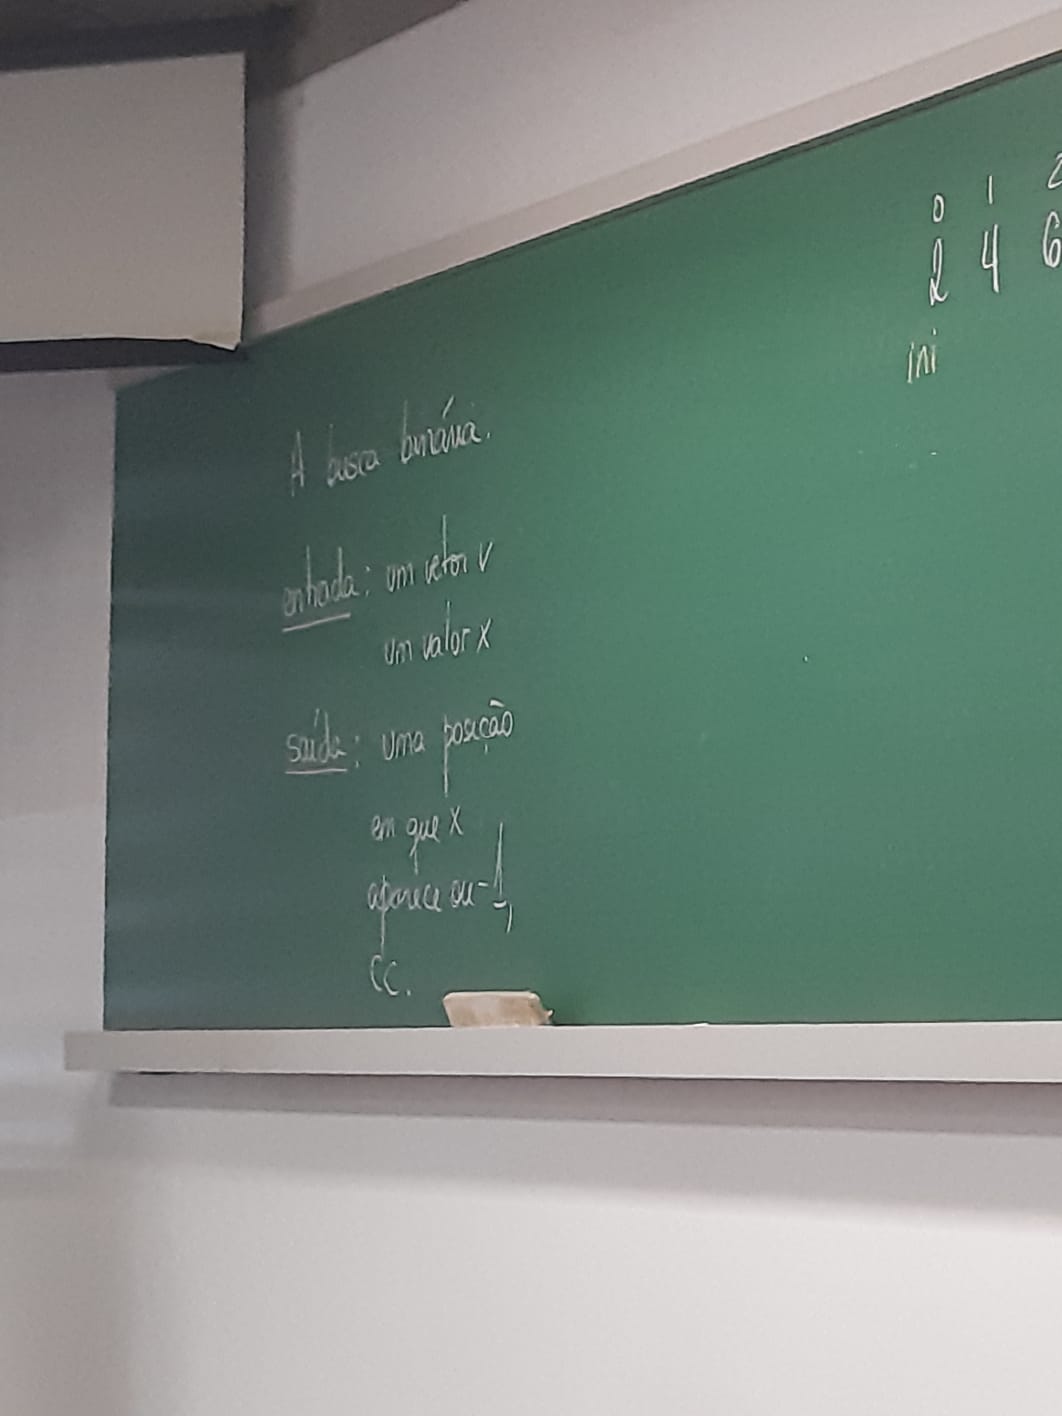 A busca binária.
entrada: um vetor v
um valor x
saída: uma posição
em que x
aparece ou -1,
cc.
0 1 2
2 4 6
ini